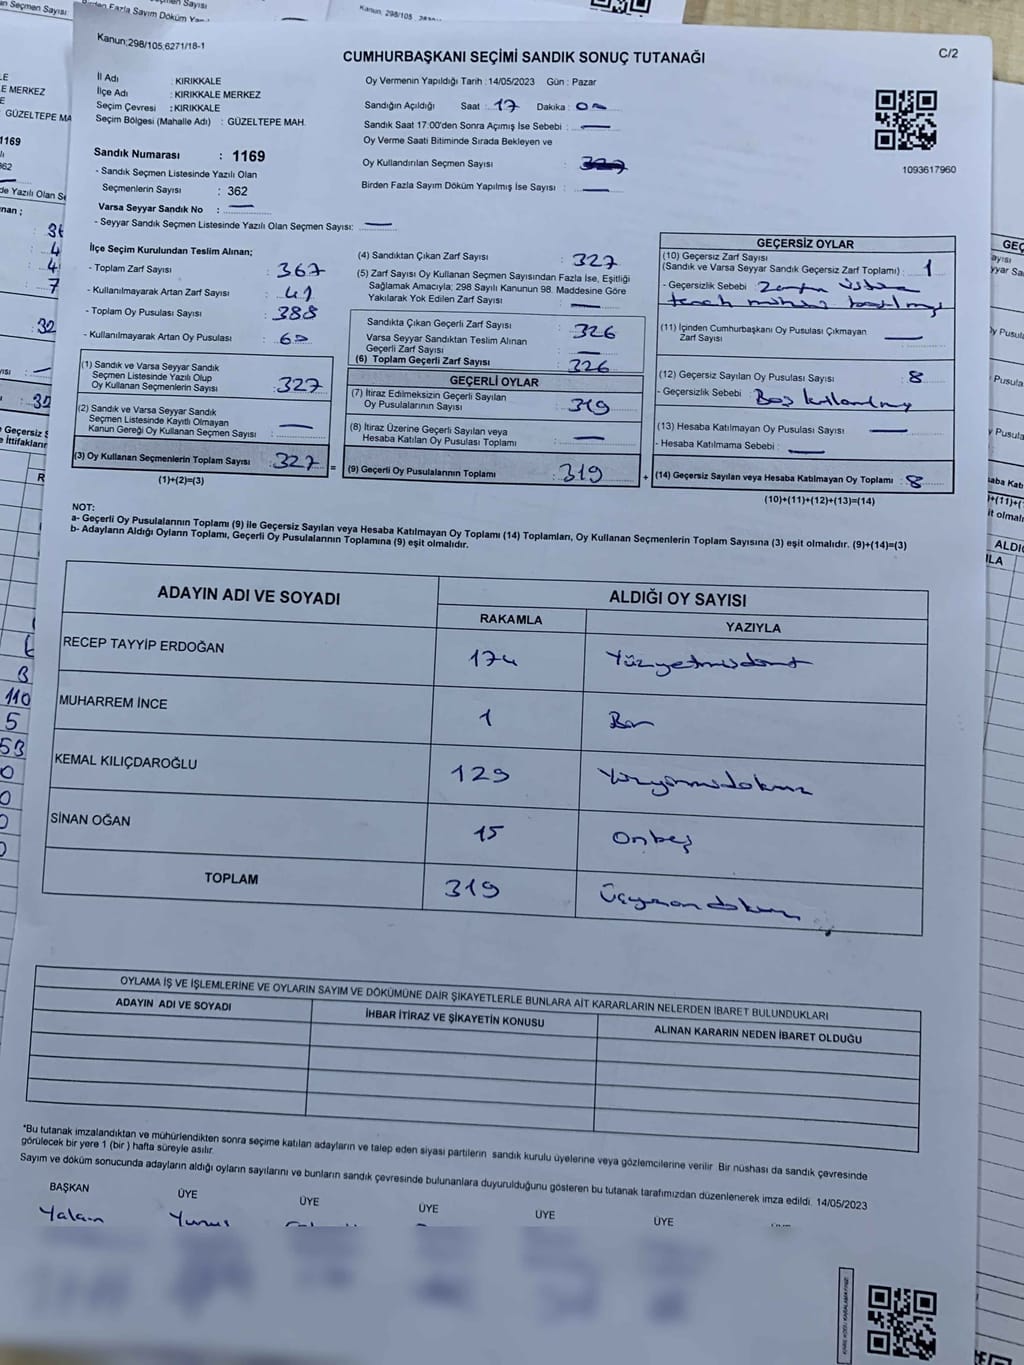 Kanun;298/105;6271/18-1
C/2
CUMHURBAŞKANI SEÇİMİ SANDIK SONUÇ TUTANAĞI
İl Adı : KIRIKKALE
İlçe Adı : KIRIKKALE MERKEZ
Seçim Çevresi : KIRIKKALE
Seçim Bölgesi (Mahalle Adı) : GÜZELTEPE MAH.
Sandık Numarası : 1169
- Sandık Seçmen Listesinde Yazılı Olan
Seçmenlerin Sayısı : 362
Varsa Seyyar Sandık No : —
- Seyyar Sandık Seçmen Listesinde Yazılı Olan Seçmen Sayısı: —
Oy Vermenin Yapıldığı Tarih :14/05/2023 Gün : Pazar
Sandığın Açıldığı Saat : 17 Dakika : 00
Sandık Saat 17:00'den Sonra Açımış İse Sebebi : —
Oy Verme Saati Bitiminde Sırada Bekleyen ve
Oy Kullandırılan Seçmen Sayısı : 327
Birden Fazla Sayım Döküm Yapılmış İse Sayısı : —
1093617960
İlçe Seçim Kurulundan Teslim Alınan;
- Toplam Zarf Sayısı : 367
- Kullanılmayarak Artan Zarf Sayısı : 41
- Toplam Oy Pusulası Sayısı : 388
- Kullanılmayarak Artan Oy Pusulası : 60
(1) Sandık ve Varsa Seyyar Sandık
Seçmen Listesinde Yazılı Olup
Oy Kullanan Seçmenlerin Sayısı : 327
(2) Sandık ve Varsa Seyyar Sandık
Seçmen Listesinde Kayıtlı Olmayan
Kanun Gereği Oy Kullanan Seçmen Sayısı : —
(3) Oy Kullanan Seçmenlerin Toplam Sayısı : 327
(1)+(2)=(3)
(4) Sandıktan Çıkan Zarf Sayısı : 327
(5) Zarf Sayısı Oy Kullanan Seçmen Sayısından Fazla İse, Eşitliği
Sağlamak Amacıyla; 298 Sayılı Kanunun 98. Maddesine Göre
Yakılarak Yok Edilen Zarf Sayısı : —
Sandıkta Çıkan Geçerli Zarf Sayısı : 326
Varsa Seyyar Sandıktan Teslim Alınan
Geçerli Zarf Sayısı : —
(6) Toplam Geçerli Zarf Sayısı : 326
GEÇERLİ OYLAR
(7) İtiraz Edilmeksizin Geçerli Sayılan
Oy Pusulalarının Sayısı : 319
(8) İtiraz Üzerine Geçerli Sayılan veya
Hesaba Katılan Oy Pusulası Toplamı : —
= (9) Geçerli Oy Pusulalarının Toplamı : 319
GEÇERSİZ OYLAR
(10) Geçersiz Zarf Sayısı
(Sandık ve Varsa Seyyar Sandık Geçersiz Zarf Toplamı) : 1
- Geçersizlik Sebebi : Zarfın üstüne
(11) İçinden Cumhurbaşkanı Oy Pusulası Çıkmayan
Zarf Sayısı : —
(12) Geçersiz Sayılan Oy Pusulası Sayısı : 8
- Geçersizlik Sebebi : Boş kullanılmış
(13) Hesaba Katılmayan Oy Pusulası Sayısı : —
- Hesaba Katılmama Sebebi : —
+ (14) Geçersiz Sayılan veya Hesaba Katılmayan Oy Toplamı : 8
(10)+(11)+(12)+(13)=(14)
NOT:
a- Geçerli Oy Pusulalarının Toplamı (9) ile Geçersiz Sayılan veya Hesaba Katılmayan Oy Toplamı (14) Toplamları, Oy Kullanan Seçmenlerin Toplam Sayısına (3) eşit olmalıdır. (9)+(14)=(3)
b- Adayların Aldığı Oyların Toplamı, Geçerli Oy Pusulalarının Toplamına (9) eşit olmalıdır.
ADAYIN ADI VE SOYADI
ALDIĞI OY SAYISI
RAKAMLA YAZIYLA
RECEP TAYYİP ERDOĞAN 174 Yüzyetmişdört
MUHARREM İNCE 1 Bir
KEMAL KILIÇDAROĞLU 129 Yüzyirmidokuz
SİNAN OĞAN 15 Onbeş
TOPLAM 319 Üçyüzondokuz
OYLAMA İŞ VE İŞLEMLERİNE VE OYLARIN SAYIM VE DÖKÜMÜNE DAİR ŞİKAYETLERLE BUNLARA AİT KARARLARIN NELERDEN İBARET BULUNDUKLARI
ADAYIN ADI VE SOYADI İHBAR İTİRAZ VE ŞİKAYETİN KONUSU ALINAN KARARIN NEDEN İBARET OLDUĞU
*Bu tutanak imzalandıktan ve mühürlendikten sonra seçime katılan adayların ve talep eden siyasi partilerin sandık kurulu üyelerine veya gözlemcilerine verilir. Bir nüshası da sandık çevresinde
görülecek bir yere 1 (bir ) hafta süreyle asılır.
Sayım ve döküm sonucunda adayların aldığı oyların sayılarını ve bunların sandık çevresinde bulunanlara duyurulduğunu gösteren bu tutanak tarafımızdan düzenlenerek imza edildi. 14/05/2023
BAŞKAN ÜYE ÜYE ÜYE ÜYE ÜYE
Yalçın Yunus